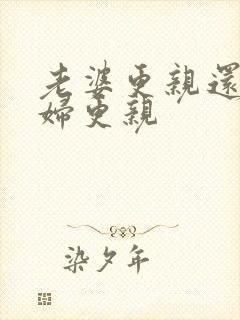 老婆更親還
婦更親
染夕年